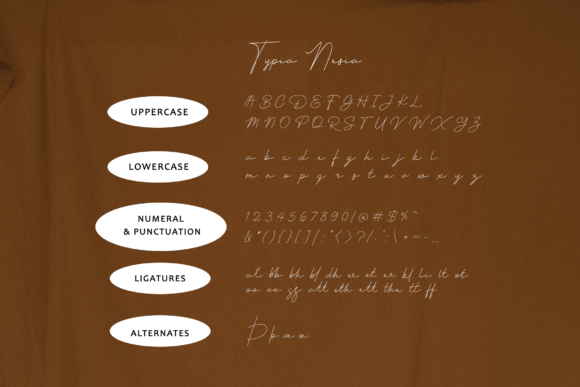 Typia Nesia
UPPERCASE
A B C D E F G H I J K L
M N O P Q R S T U V W X Y Z
LOWERCASE
a b c d e f g h i j k l
m n o p q r s t u v w x y z
NUMERAL
& PUNCTUATION
1 2 3 4 5 6 7 8 9 0 ( @ # $ % ^
LIGATURES
at bb bh bl dh er et er kl li lt ot
oo uu gg att eth ett the tt ff
ALTERNATES